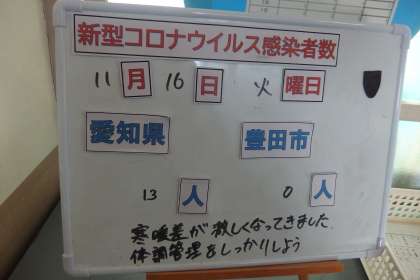 新型コロナウイルス感染者数
11月16日 火曜日
愛知県 豊田市
13人 0人
寒暖差が激しくなってきました
体調管理をしっかりしよう